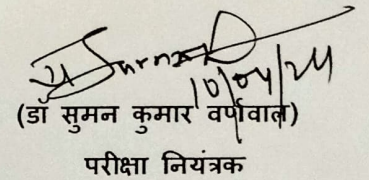 10/04/24
(डॉ सुमन कुमार वर्णवाल)
परीक्षा नियंत्रक